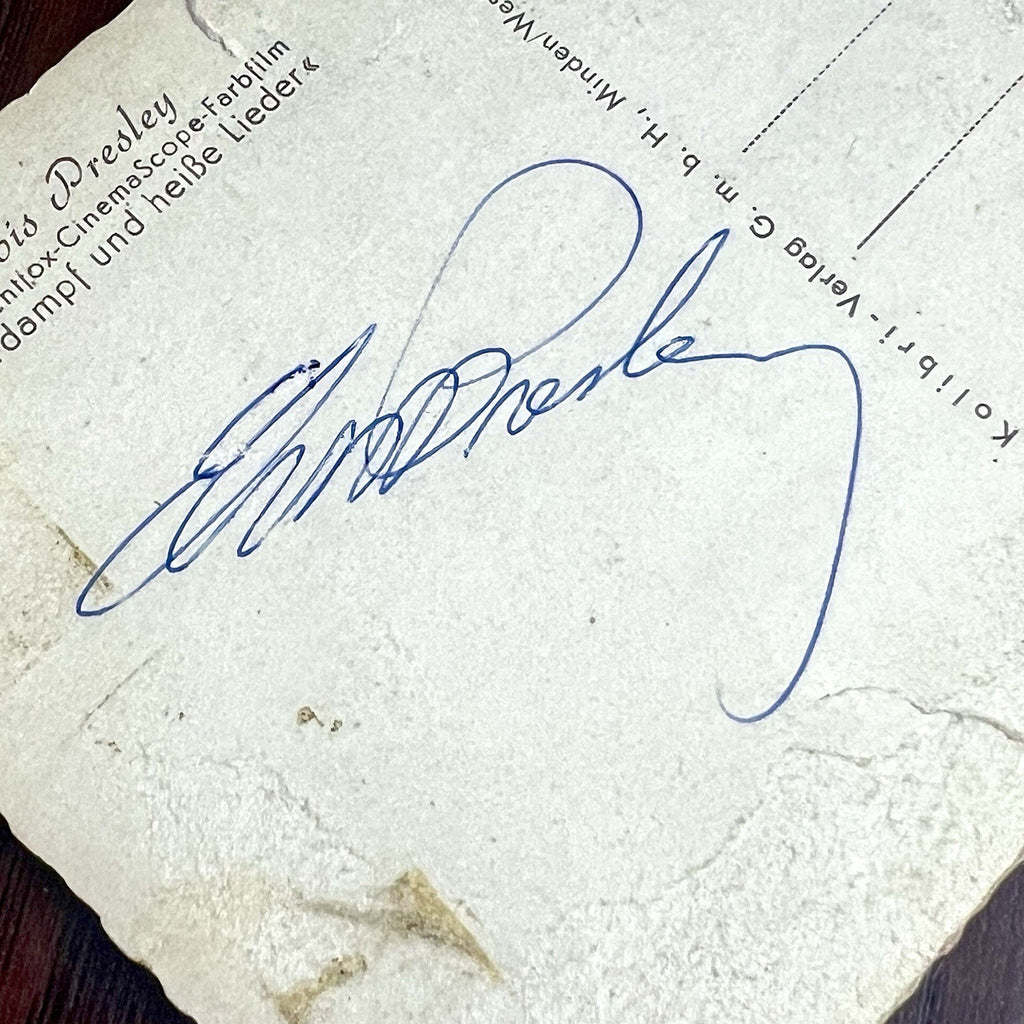 is Presley
CinemaScope-Farbfilm
dampf und heiße Lieder«
Elvis Presley
Kolibri-Verlag G. m. b. H., Minden/We